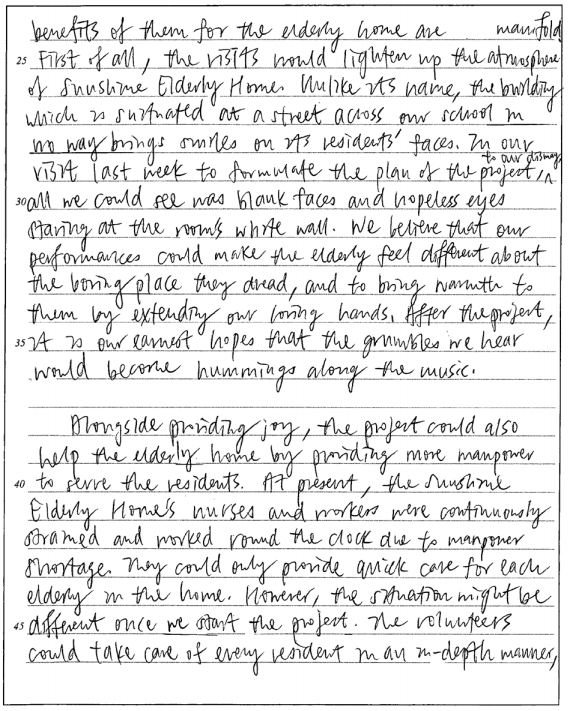 benefits of them for the elderly home are manifold
25 First of all, the visits would lighten up the atmosphere
of Sunshine Elderly Home. Unlike its name, the building
which is situated at a street across our school in
no way brings smiles on its residents' faces. In our
visit last week to formulate the plan of the project, to our dismay
30 all we could see was blank faces and hopeless eyes
staring at the room's white wall. We believe that our
performances could make the elderly feel different about
the boring place they dread, and to bring warmth to
them by extending our loving hands. After the project,
35 it is our earnest hopes that the grumbles we hear
would become hummings along the music.
Alongside providing joy, the project could also
help the elderly home by providing more manpower
40 to serve the residents. At present, the Sunshine
Elderly Home's nurses and workers were continuously
strained and worked round the clock due to manpower
shortage. They could only provide quick care for each
elderly in the home. However, the situation might be
45 different once we start the project. The volunteers
could take care of every resident in an in-depth manner,